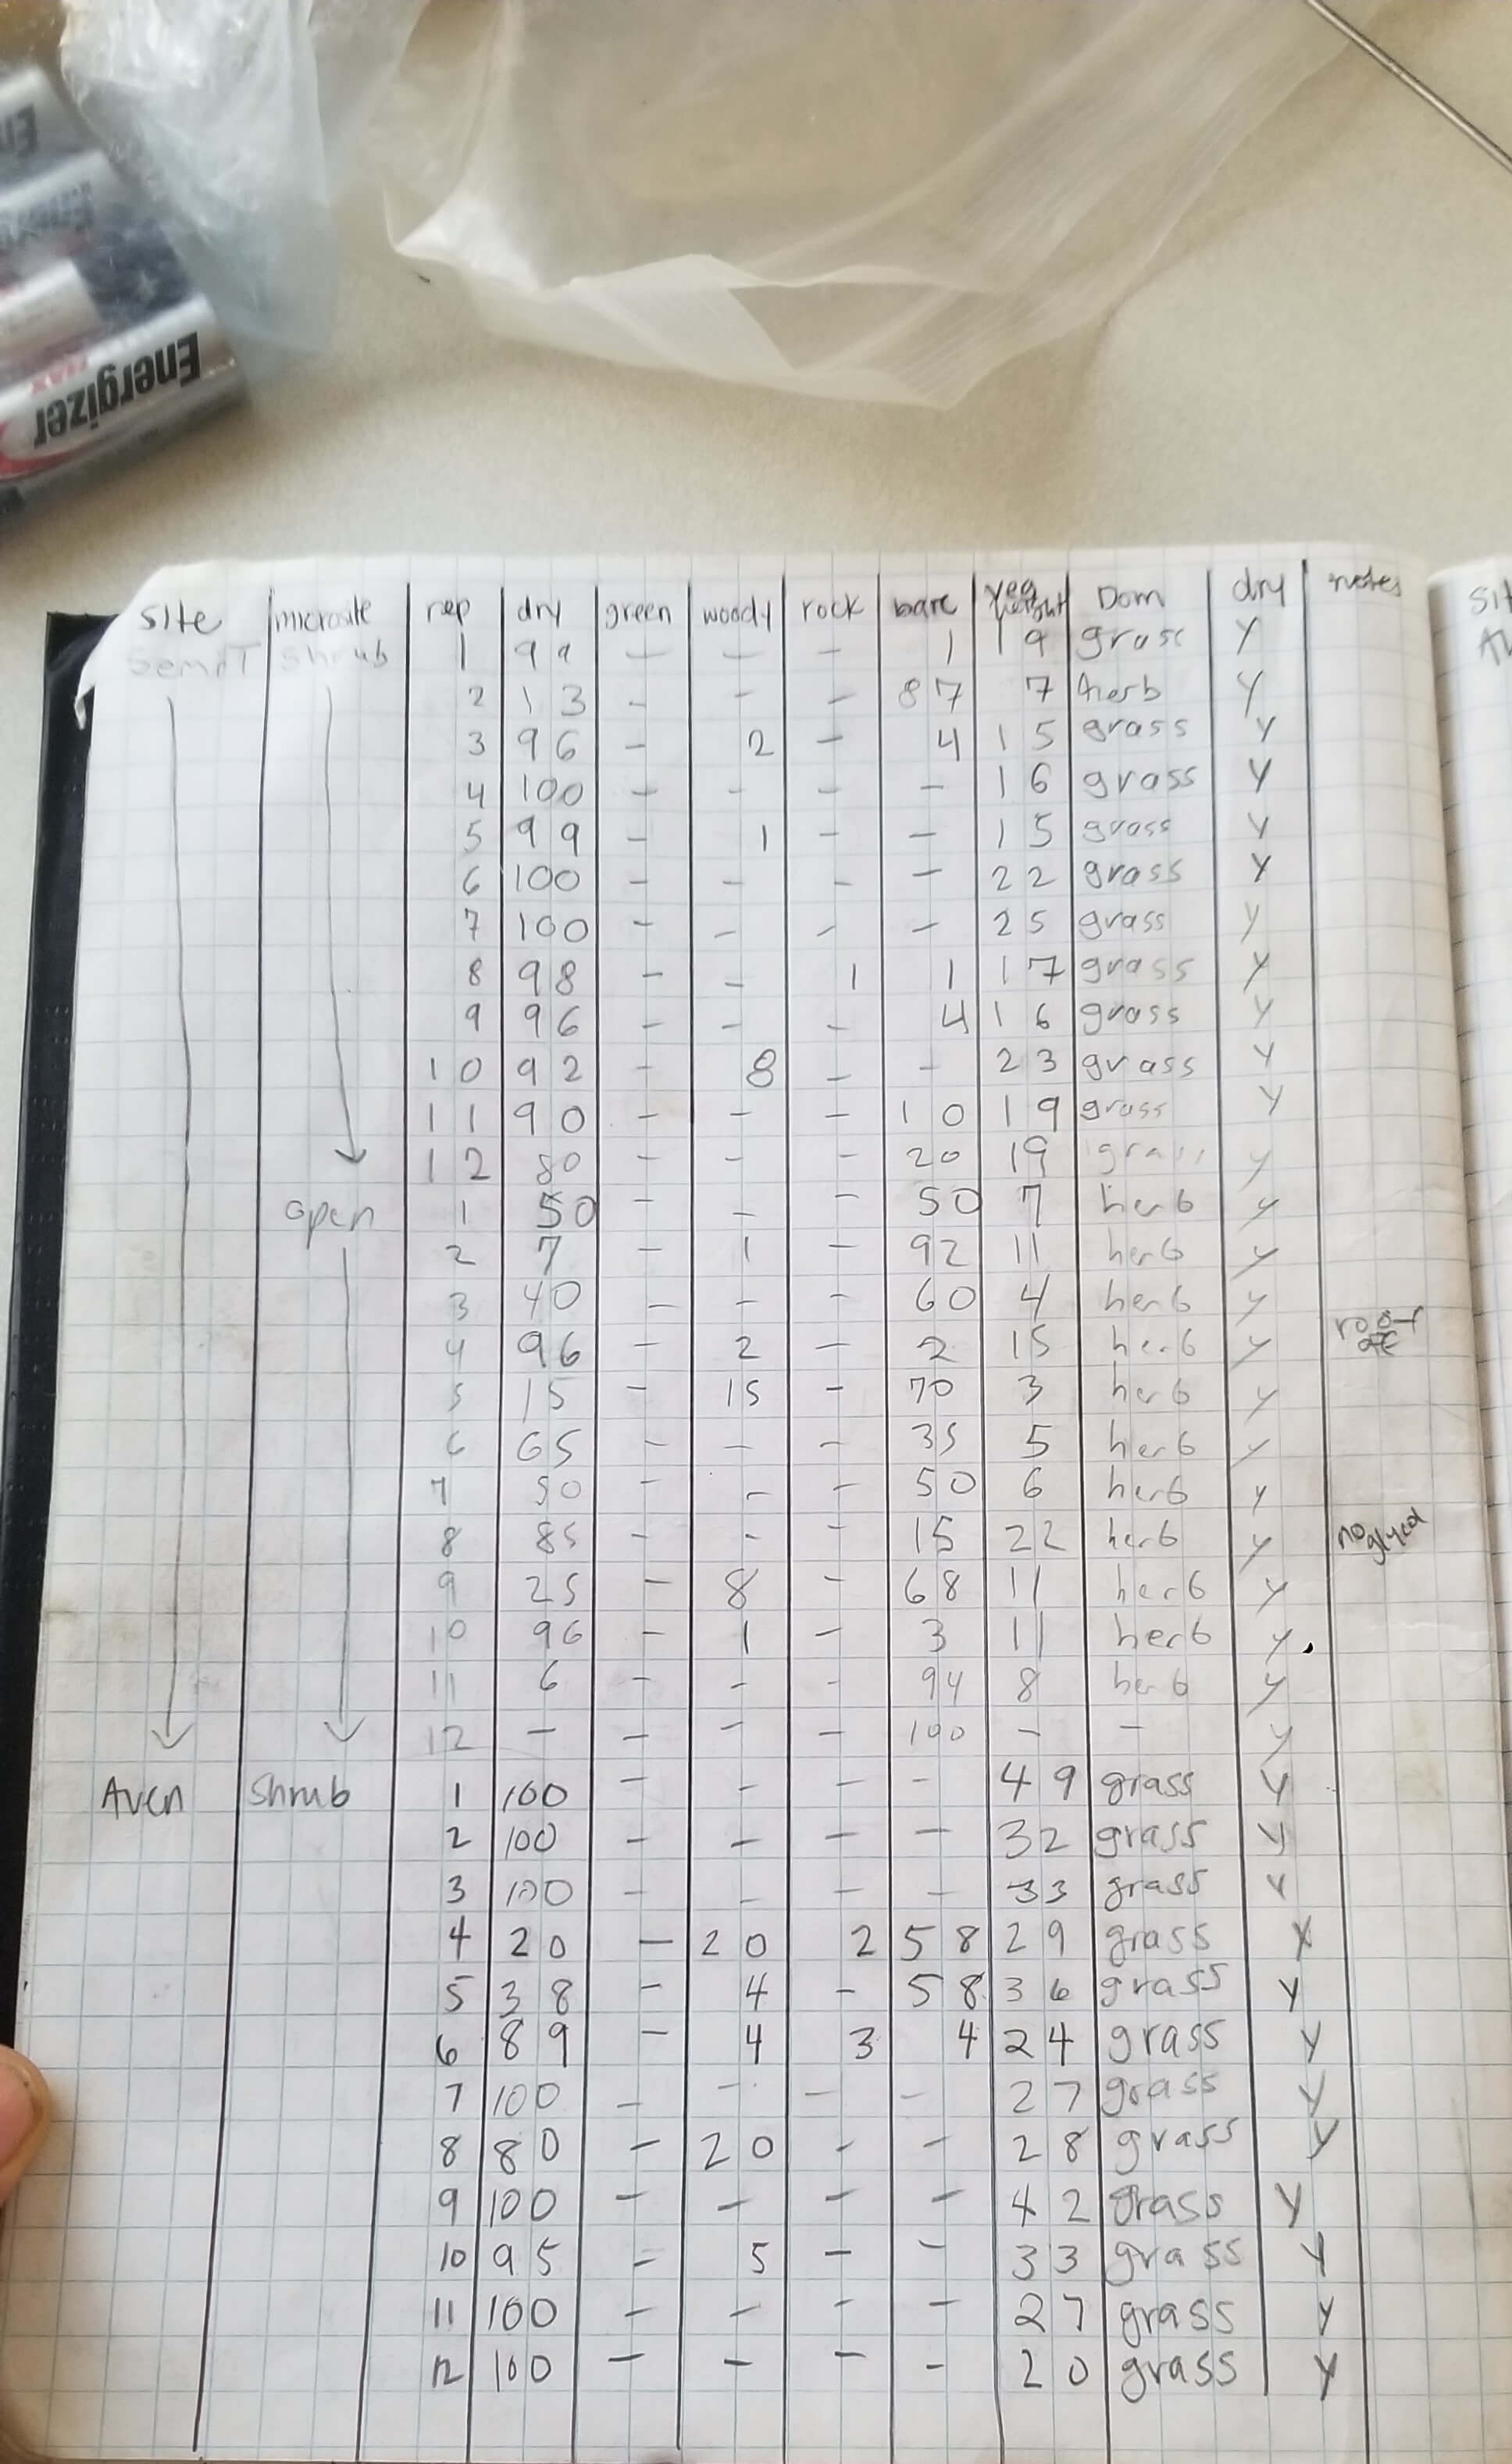 Energizer
MAX
site microsite rep dry green woody rock bare veg height Dom dry notes
SemiT shrub 1 99 - - - 1 19 grass Y
2 13 - - - 87 7 herb Y
3 96 - 2 - 4 15 grass Y
4 100 - - - - 16 grass Y
5 99 - 1 - - 15 grass Y
6 100 - - - - 22 grass Y
7 100 - - - - 25 grass Y
8 98 - - 1 1 17 grass Y
9 96 - - - 4 16 grass Y
10 92 - 8 - - 23 grass Y
11 90 - - - 10 19 grass Y
12 80 - - - 20 19 grass y
open 1 50 - - - 50 7 herb y
2 7 - 1 - 92 11 herb y
3 40 - - - 60 4 herb y
4 96 - 2 - 2 15 herb y
5 15 - 15 - 70 3 herb y
6 65 - - - 35 5 herb y
7 50 - - - 50 6 herb y
8 85 - - - 15 22 herb y no glycol
9 25 - 8 - 68 11 herb y
10 96 - 1 - 3 11 herb y
11 6 - - - 94 8 herb y
12 - - - - 100 - - y
Aven shrub 1 100 - - - - 49 grass Y
2 100 - - - - 32 grass Y
3 100 - - - - 33 grass Y
4 20 - 20 2 58 29 grass Y
5 38 - 4 - 58 36 grass Y
6 89 - 4 3 4 24 grass Y
7 100 - - - - 27 grass Y
8 80 - 20 - - 28 grass Y
9 100 - - - - 42 grass Y
10 95 - 5 - - 33 grass Y
11 100 - - - - 27 grass Y
12 100 - - - - 20 grass Y